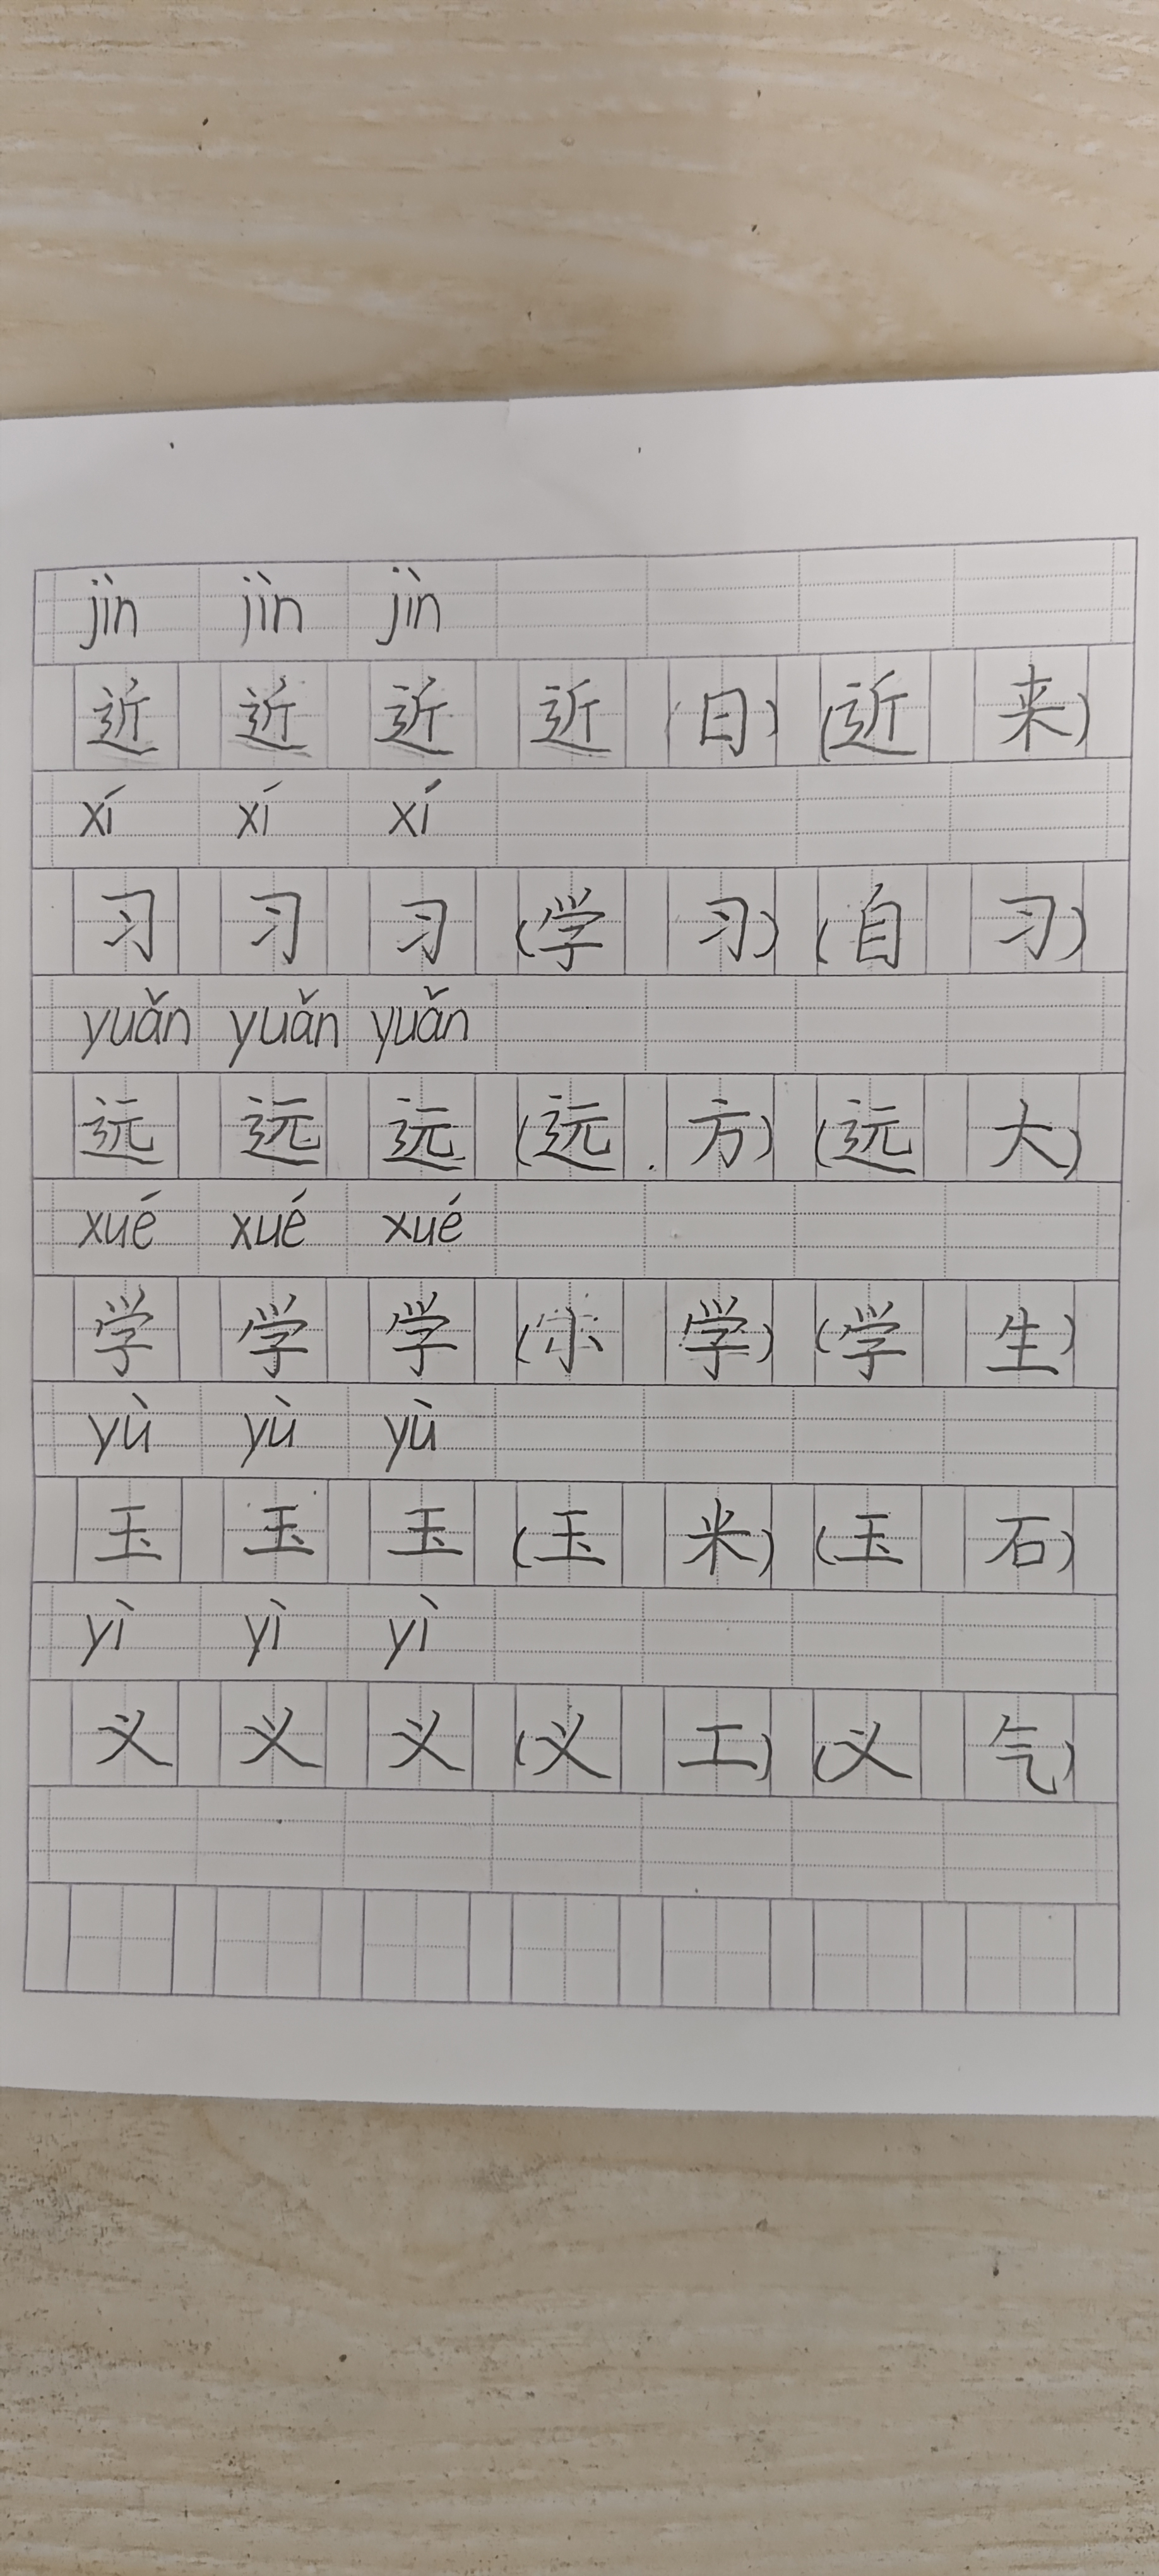 jìn jìn jìn
近 近 近 近 (日) (近 来)
xí xí xí
习 习 习 (学 习) (自 习)
yuǎn yuǎn yuǎn
远 远 远 (远 方) (远 大)
xué xué xué
学 学 学 (小 学) (学 生)
yù yù yù
玉 玉 玉 (玉 米) (玉 石)
yì yì yì
义 义 义 (义 工) (义 气)